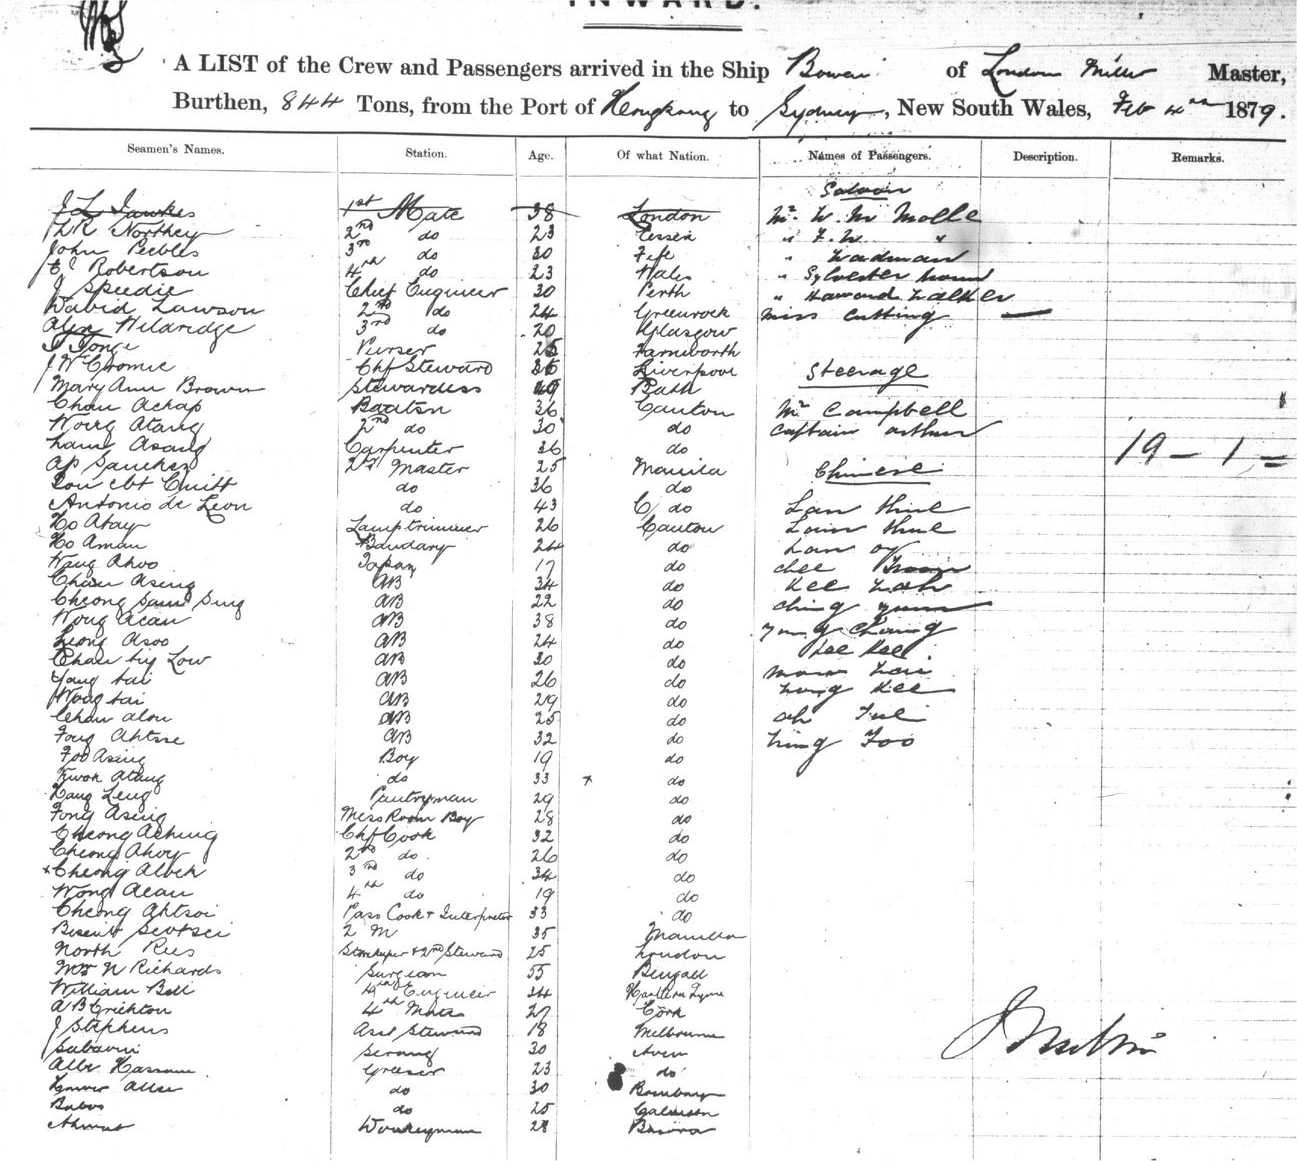 INWARD.
A LIST of the Crew and Passengers arrived in the Ship Bowen of London Miller Master,
Burthen, 844 Tons, from the Port of Hongkong to Sydney, New South Wales, Feb 4th 1879.
Seamen's Names. Station. Age. Of what Nation. Names of Passengers. Description. Remarks.
Saloon
J L Hawkes 1st Mate 38 London Mr. W. M Molle
Northey 2nd do 23 Essex " F. W. "
John Peebles 3rd do 30 Fife " Wadman
Robertson 4th do 23 Wales " Sylvester
J Speedie Chief Engineer 30 Perth " Howard Walker
David Lawson 2nd do 24 Greenock Miss Cutting
Alex Heldridge 3rd do 20 Glasgow
J Tonge Purser 25 Farnworth
J McCromie Chf Steward Liverpool Steerage
Mary Ann Brown Stewardess Bath
Chan Achap Boatsn 36 Canton Mr Campbell
Wong Atang 2nd do 30 do Captain Arthur
Lam Asang Carpenter 36 do 19 - 1 =
Ap Sanchez 2r Master 25 Manila Chinese
do 36 do
Antonio de Leon do 43 do Lan
Ho Atay Lamptrimmer 26 Canton
Ho Aman Bandary 24 do
Wang Ahoo Topaz 17 do
Chan Aseng AB 34 do Kee
Cheong Sam Sing AB 22 do Ching
Wong Acan AB 38 do Yung Chung
Leong Asoo AB 24 do Lee Kee
Chan Low AB 30 do
Yang tai AB 26 do Kee
Wong tai AB 29 do Ah
Chan Alon AB 25 do
Fong Ahtse AB 32 do Foo
Foo Asing Boy 19 do
Kwok Atang do 33 do
Leng Pantryman 29 do
Fong Aseng Mess Room Boy 28 do
Cheong Aching Chf Cook 32 do
Cheong Ahoy 2nd do 26 do
Cheong Alock 3rd do 34 do
Wong Acan 4th do 19 do
Cheong Ahtsoi Pass Cook & Interpreter 33 do
2 M 35 Manilla
North Rees Storekeeper & 2nd Steward 25 London
N Richards Surgeon 55 Bengal
William Bell 4th Engineer 24
A B Crichton 4th Mate 27 Cork
J Stephens Asst Steward 18 Melbourne
Serang 30
Hassan Greaser 23 do
do 30 Bombay
do 25
Ahmat Donkeyman 28